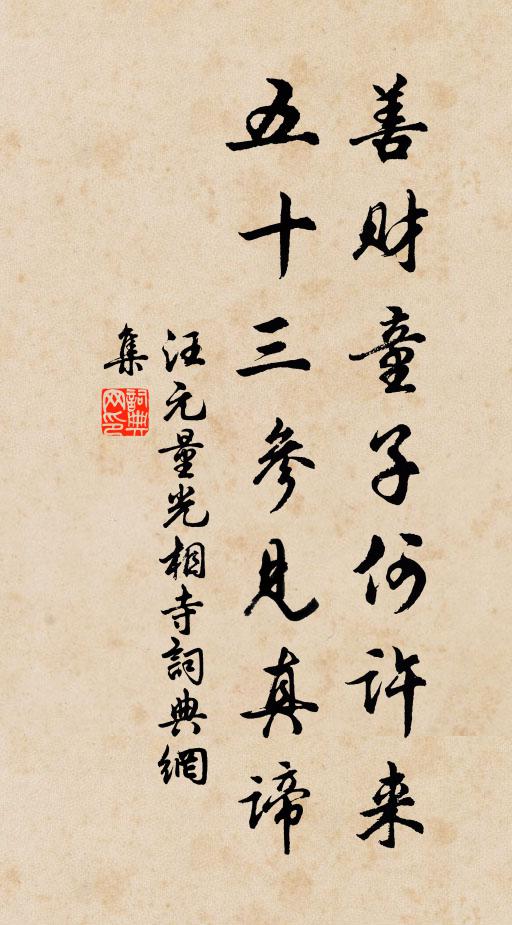 善财童子何许来
五十三参见真谛
汪元量光相寺詞典網
集
詞典
网印